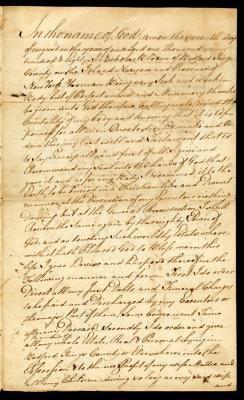 In the name of God amen the seventh day
of August in the year of our Lord one thousand seven
hundred & eight, I Nicholas Bloom of Bedford Kings
County on the Island Nassau and Province of
New York Yeoman being very Sick and Weak in
Body but of Perfect mind and Memory thanks
be given to God therefore Calling unto mind the
Mortality of my body and knowing that it is Ap-
pointed for all men Once to die Do make and Or-
dain this my Last will and Testament that is
to Say Principally and first of all I give and
Recommend my Soul into the Hands of God that
gave it and for my Body I recommend it to the
Earth to be buried in a Christian like and Decent
manner at the Discretion of my Executors nothing
Doubting but at the General Resurrection I Shall
Receive the Same again by the mighty Power of
God and as touching Such worldly Estate where-
with it hath Pleased God to bless me in this
life I give Devise and Dispose thereof in the
following manner and form First I do order
Direct all my just Debts and Funeral Charges
to be paid and Discharged by my Executors or
the major Part of them Some Convenient Time
after my Decease Secondly I do order and give
all my whole Estate Real & Personal Lying in
Bedford Kings County or Elsewhere into the
Possession & to the use of my wife
my Children during so long as my wife
and